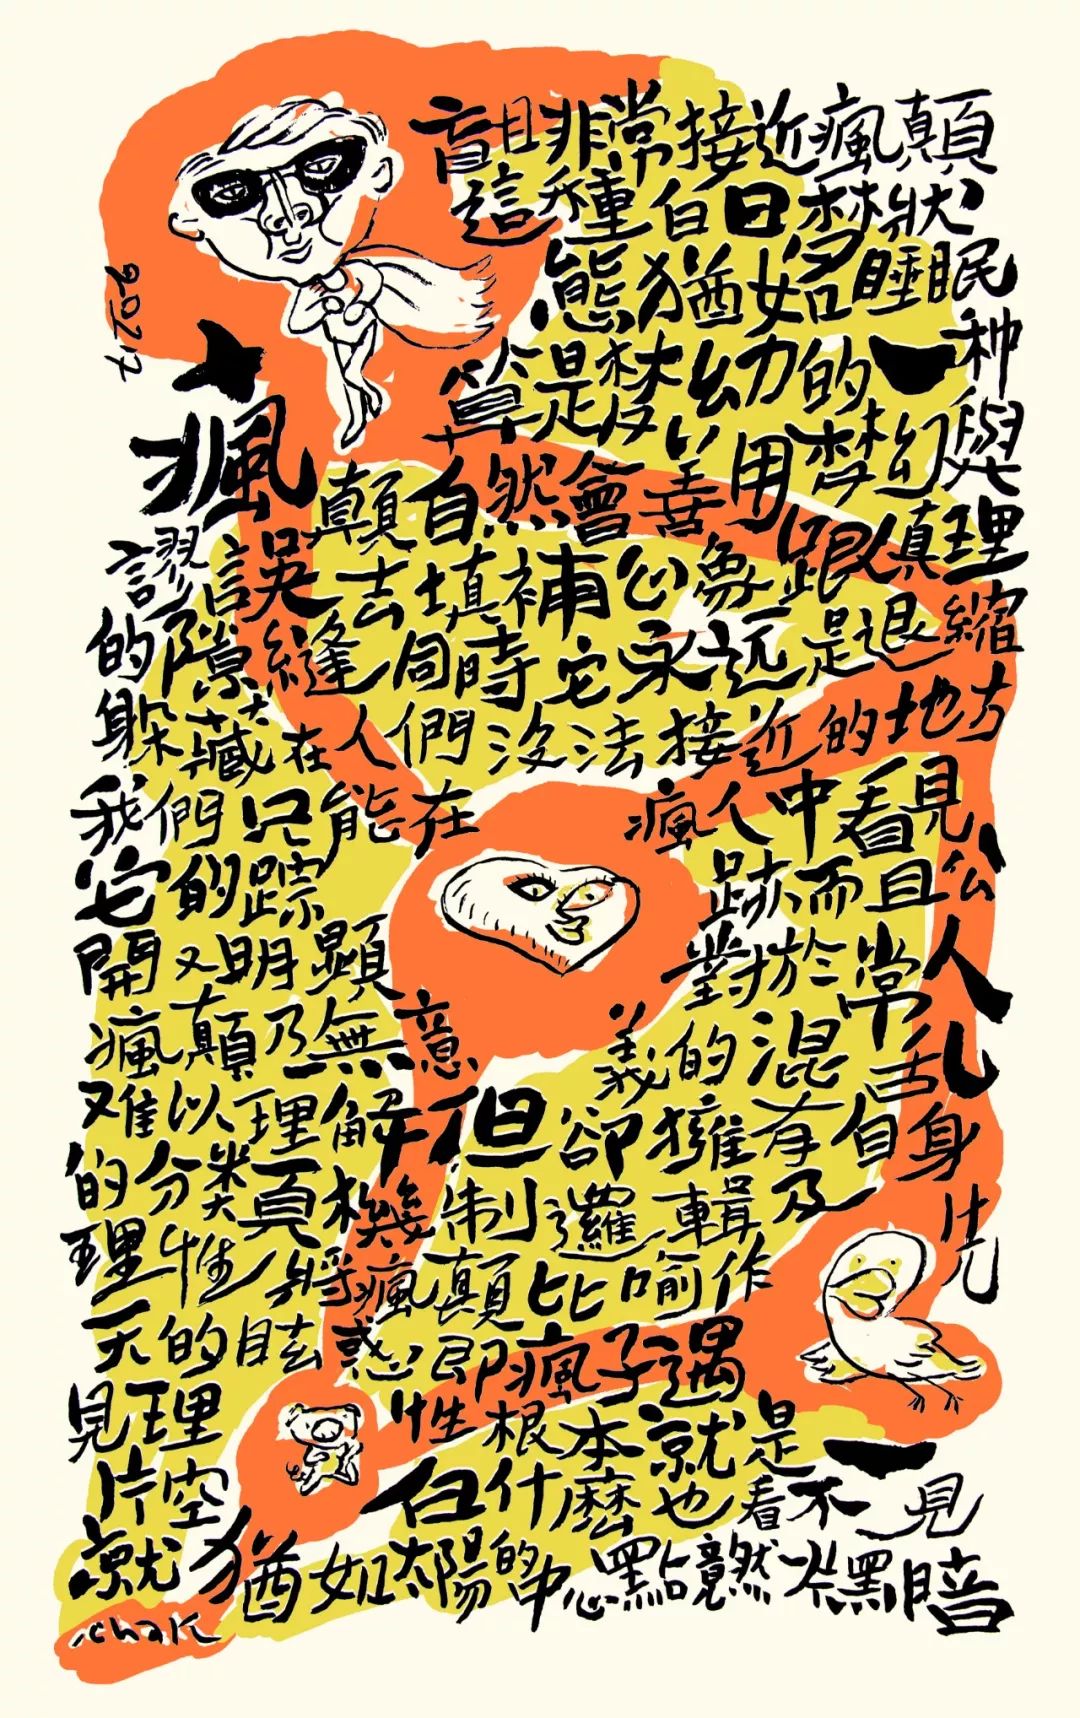 盲目非常接近瘋顛
這種白日梦狀
態猶如睡眠
算是梦幼的一种
瘋顛自然會善用梦幻與
謬誤去填補公象跟真理
的隙縫同時它永远是退縮
躲藏在人們没法接近的地方
我們只能在瘋人中看見
它的踪跡而且公
開又明顯對於常人
瘋顛乃無意義的混乱
难以理解但卻擁有自身
的分类真機制邏輯及先
理性将瘋顛比喻作
天的眩惑即瘋子遇
見理性根本就是一
片空白什麽也看不見
就猶如太陽的中心點竟然一片黑暗
2017
chak